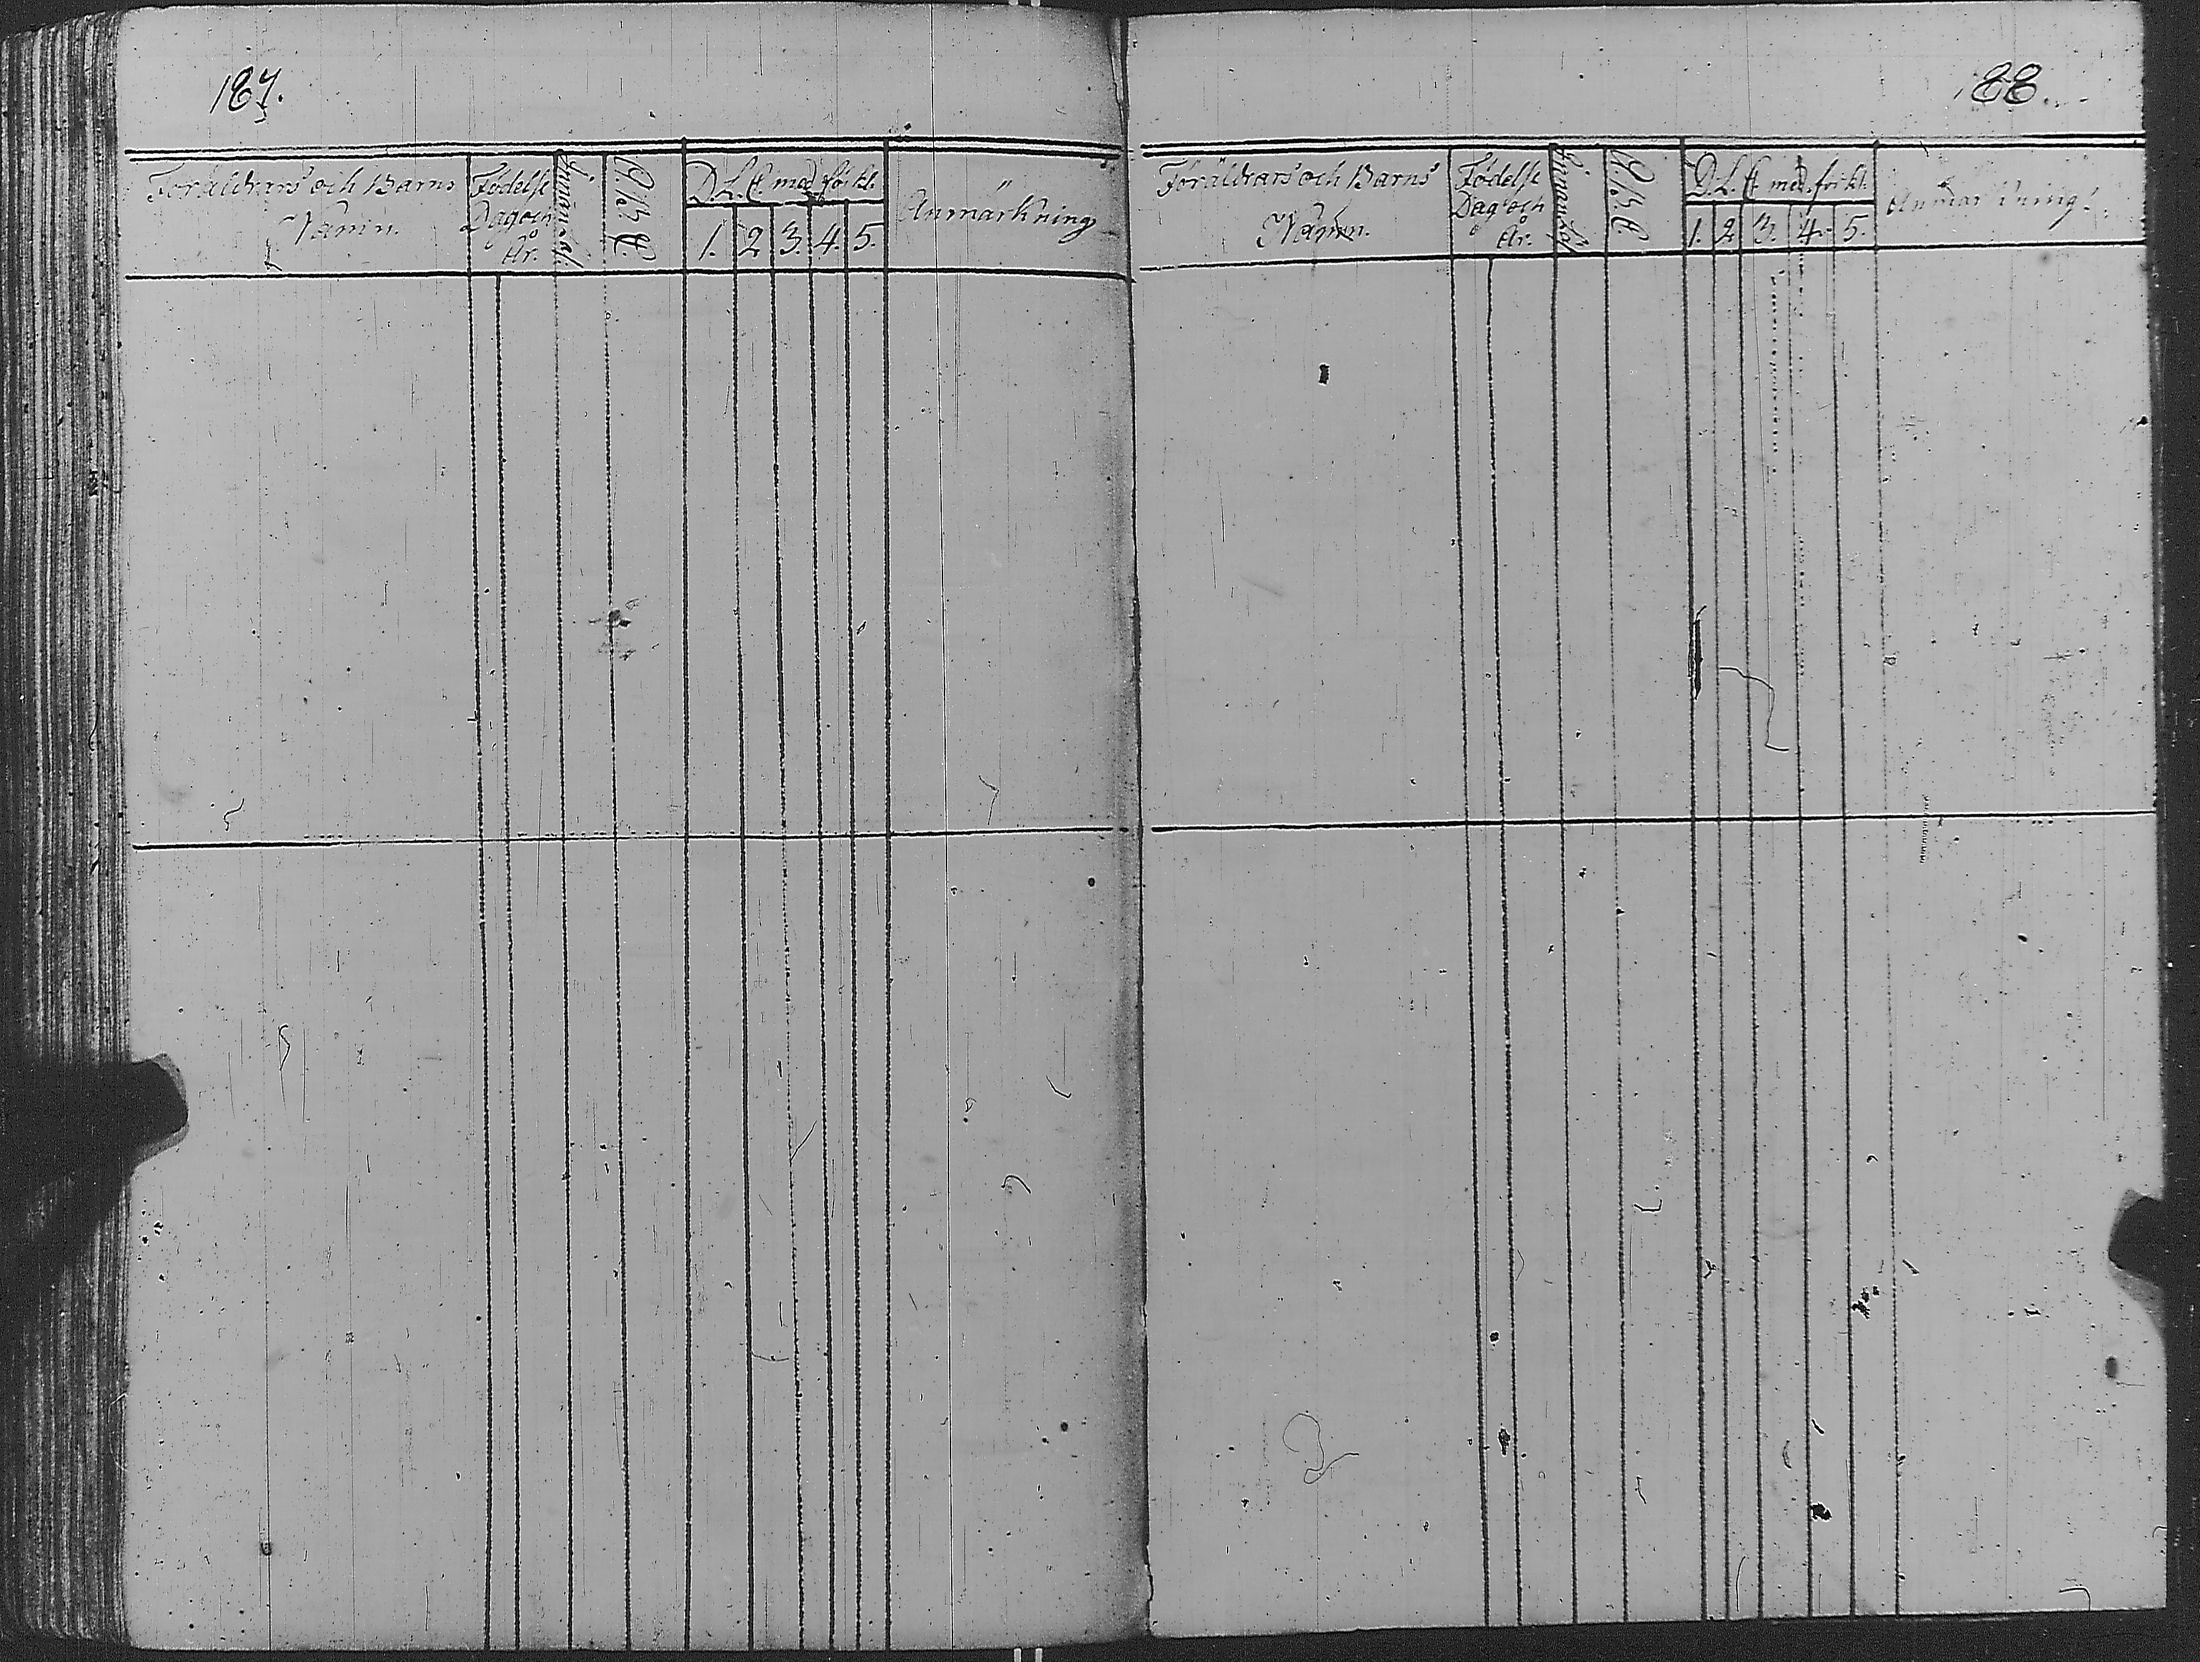 187.
Föräldrars och Barns
Namn.
Födelse
Dag och
År.
A. B. C.
D. L. C. med förkl.
1. 2. 3. 4. 5.
Anmärkning
188.
Föräldrars och Barns
Namn.
Födelse
Dag och
År.
A. B. C.
D. L. C. med förkl.
1. 2. 3. 4. 5.
Anmärkning.